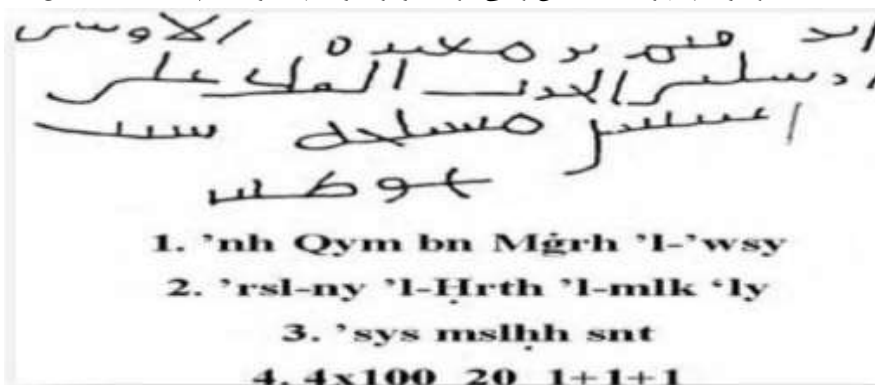 انه قيم بر مغيره الاوسي
ارسلني الحرث الملك على
اسيس مسلحه سنت
1. ’nh Qym bn Mġrh ’l-’wsy
2. ’rsl-ny ’l-Ḥrth ’l-mlk ‘ly
3. ’sys mslḥh snt
4. 4x100 20 1+1+1